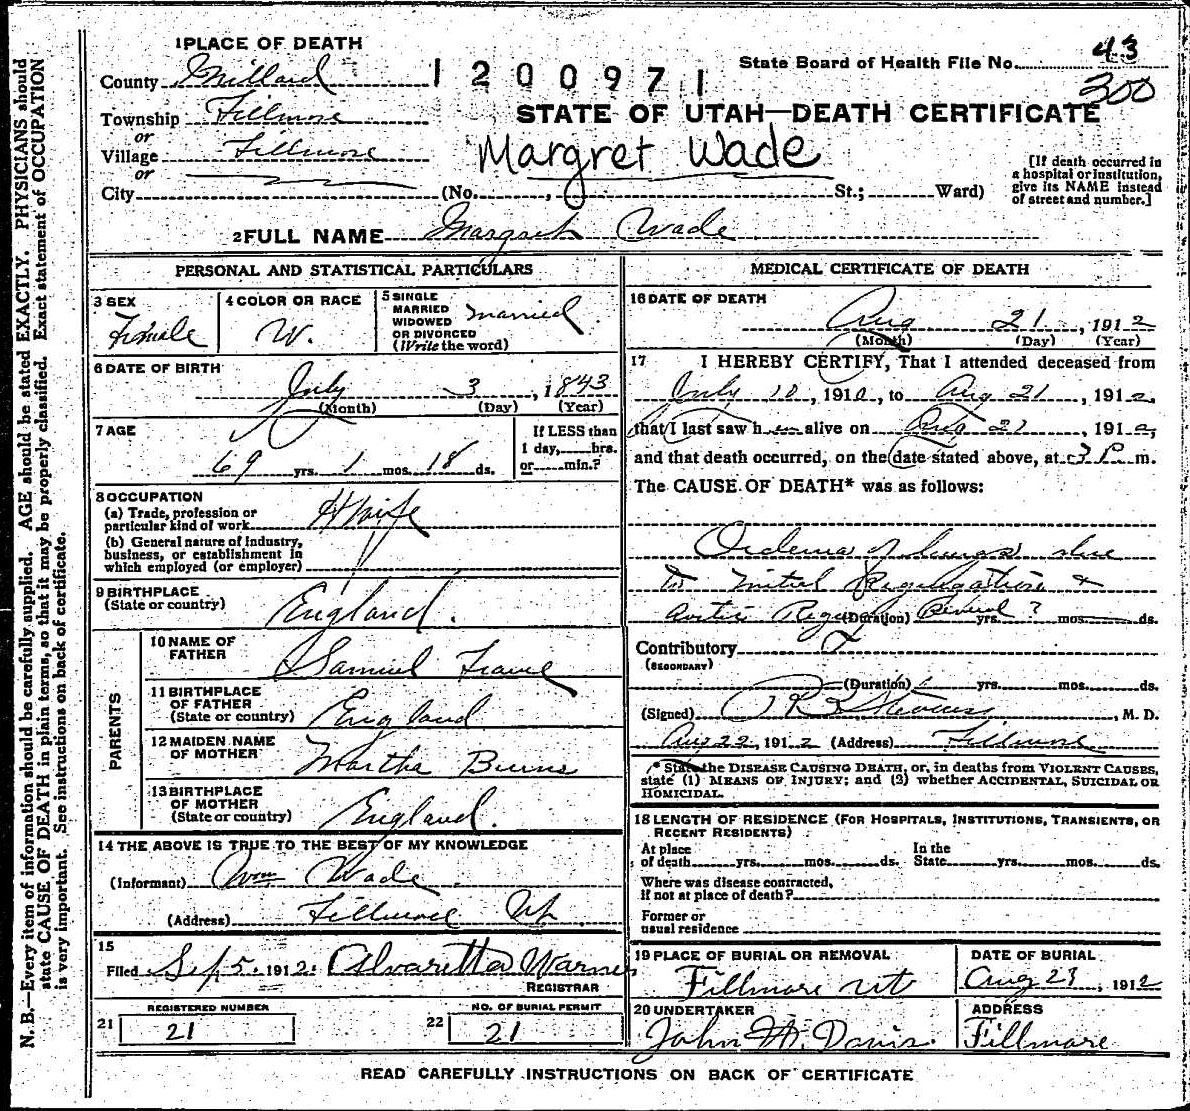 1 PLACE OF DEATH
County Millard
1200971
State Board of Health File No. 43
300
Township Fillmore
or
Village Fillmore
or
City (No. , St.; Ward)
STATE OF UTAH—DEATH CERTIFICATE
Margret Wade
[If death occurred in
a hospital or institution,
give its NAME instead
of street and number.]
2 FULL NAME Margret Wade
PERSONAL AND STATISTICAL PARTICULARS
3 SEX
Female
4 COLOR OR RACE
W.
5 SINGLE
MARRIED
WIDOWED
OR DIVORCED
(Write the word)
Married
6 DATE OF BIRTH
July 3, 1843
(Month) (Day) (Year)
7 AGE
69 yrs. 1 mos. 18 ds.
If LESS than
1 day, hrs.
or min.?
8 OCCUPATION
(a) Trade, profession or
particular kind of work H Wife
(b) General nature of industry,
business, or establishment in
which employed (or employer)
9 BIRTHPLACE
(State or country) England.
PARENTS
10 NAME OF
FATHER Samuel
11 BIRTHPLACE
OF FATHER
(State or country) England
12 MAIDEN NAME
OF MOTHER Martha Burns
13 BIRTHPLACE
OF MOTHER
(State or country) England.
14 THE ABOVE IS TRUE TO THE BEST OF MY KNOWLEDGE
(Informant) Wm Wade
(Address) Fillmore Ut
15
Filed Sep 5. 1912. Alvaretta Warner
REGISTRAR
REGISTERED NUMBER
21 21
NO. OF BURIAL PERMIT
22 21
MEDICAL CERTIFICATE OF DEATH
16 DATE OF DEATH
Aug 21, 1912
(Month) (Day) (Year)
17 I HEREBY CERTIFY, That I attended deceased from
July 10, 1910, to Aug 21, 1912,
that I last saw her alive on Aug 21, 1912,
and that death occurred, on the date stated above, at 3 P. m.
The CAUSE OF DEATH* was as follows:
Oedema of lungs due
to Mitral Regurgitation &
Aortic Regurg (Duration) Several ? yrs. mos. ds.
Contributory
(SECONDARY)
(Duration) yrs. mos. ds.
(Signed) Stevens, M. D.
Aug 22, 1912 (Address) Fillmore
* State the DISEASE CAUSING DEATH, or, in deaths from VIOLENT CAUSES,
state (1) MEANS OF INJURY; and (2) whether ACCIDENTAL, SUICIDAL OR
HOMICIDAL.
18 LENGTH OF RESIDENCE (FOR HOSPITALS, INSTITUTIONS, TRANSIENTS, OR
RECENT RESIDENTS)
At place
of death yrs. mos. ds.
In the
State yrs. mos. ds.
Where was disease contracted,
if not at place of death?
Former or
usual residence
19 PLACE OF BURIAL OR REMOVAL
Fillmore Ut
DATE OF BURIAL
Aug 23, 1912
20 UNDERTAKER
John W. Davis.
ADDRESS
Fillmore
READ CAREFULLY INSTRUCTIONS ON BACK OF CERTIFICATE
N. B.—Every item of information should be carefully supplied. AGE should be stated EXACTLY. PHYSICIANS should
state CAUSE OF DEATH in plain terms, so that it may be properly classified. Exact statement of OCCUPATION
is very important. See instructions on back of certificate.